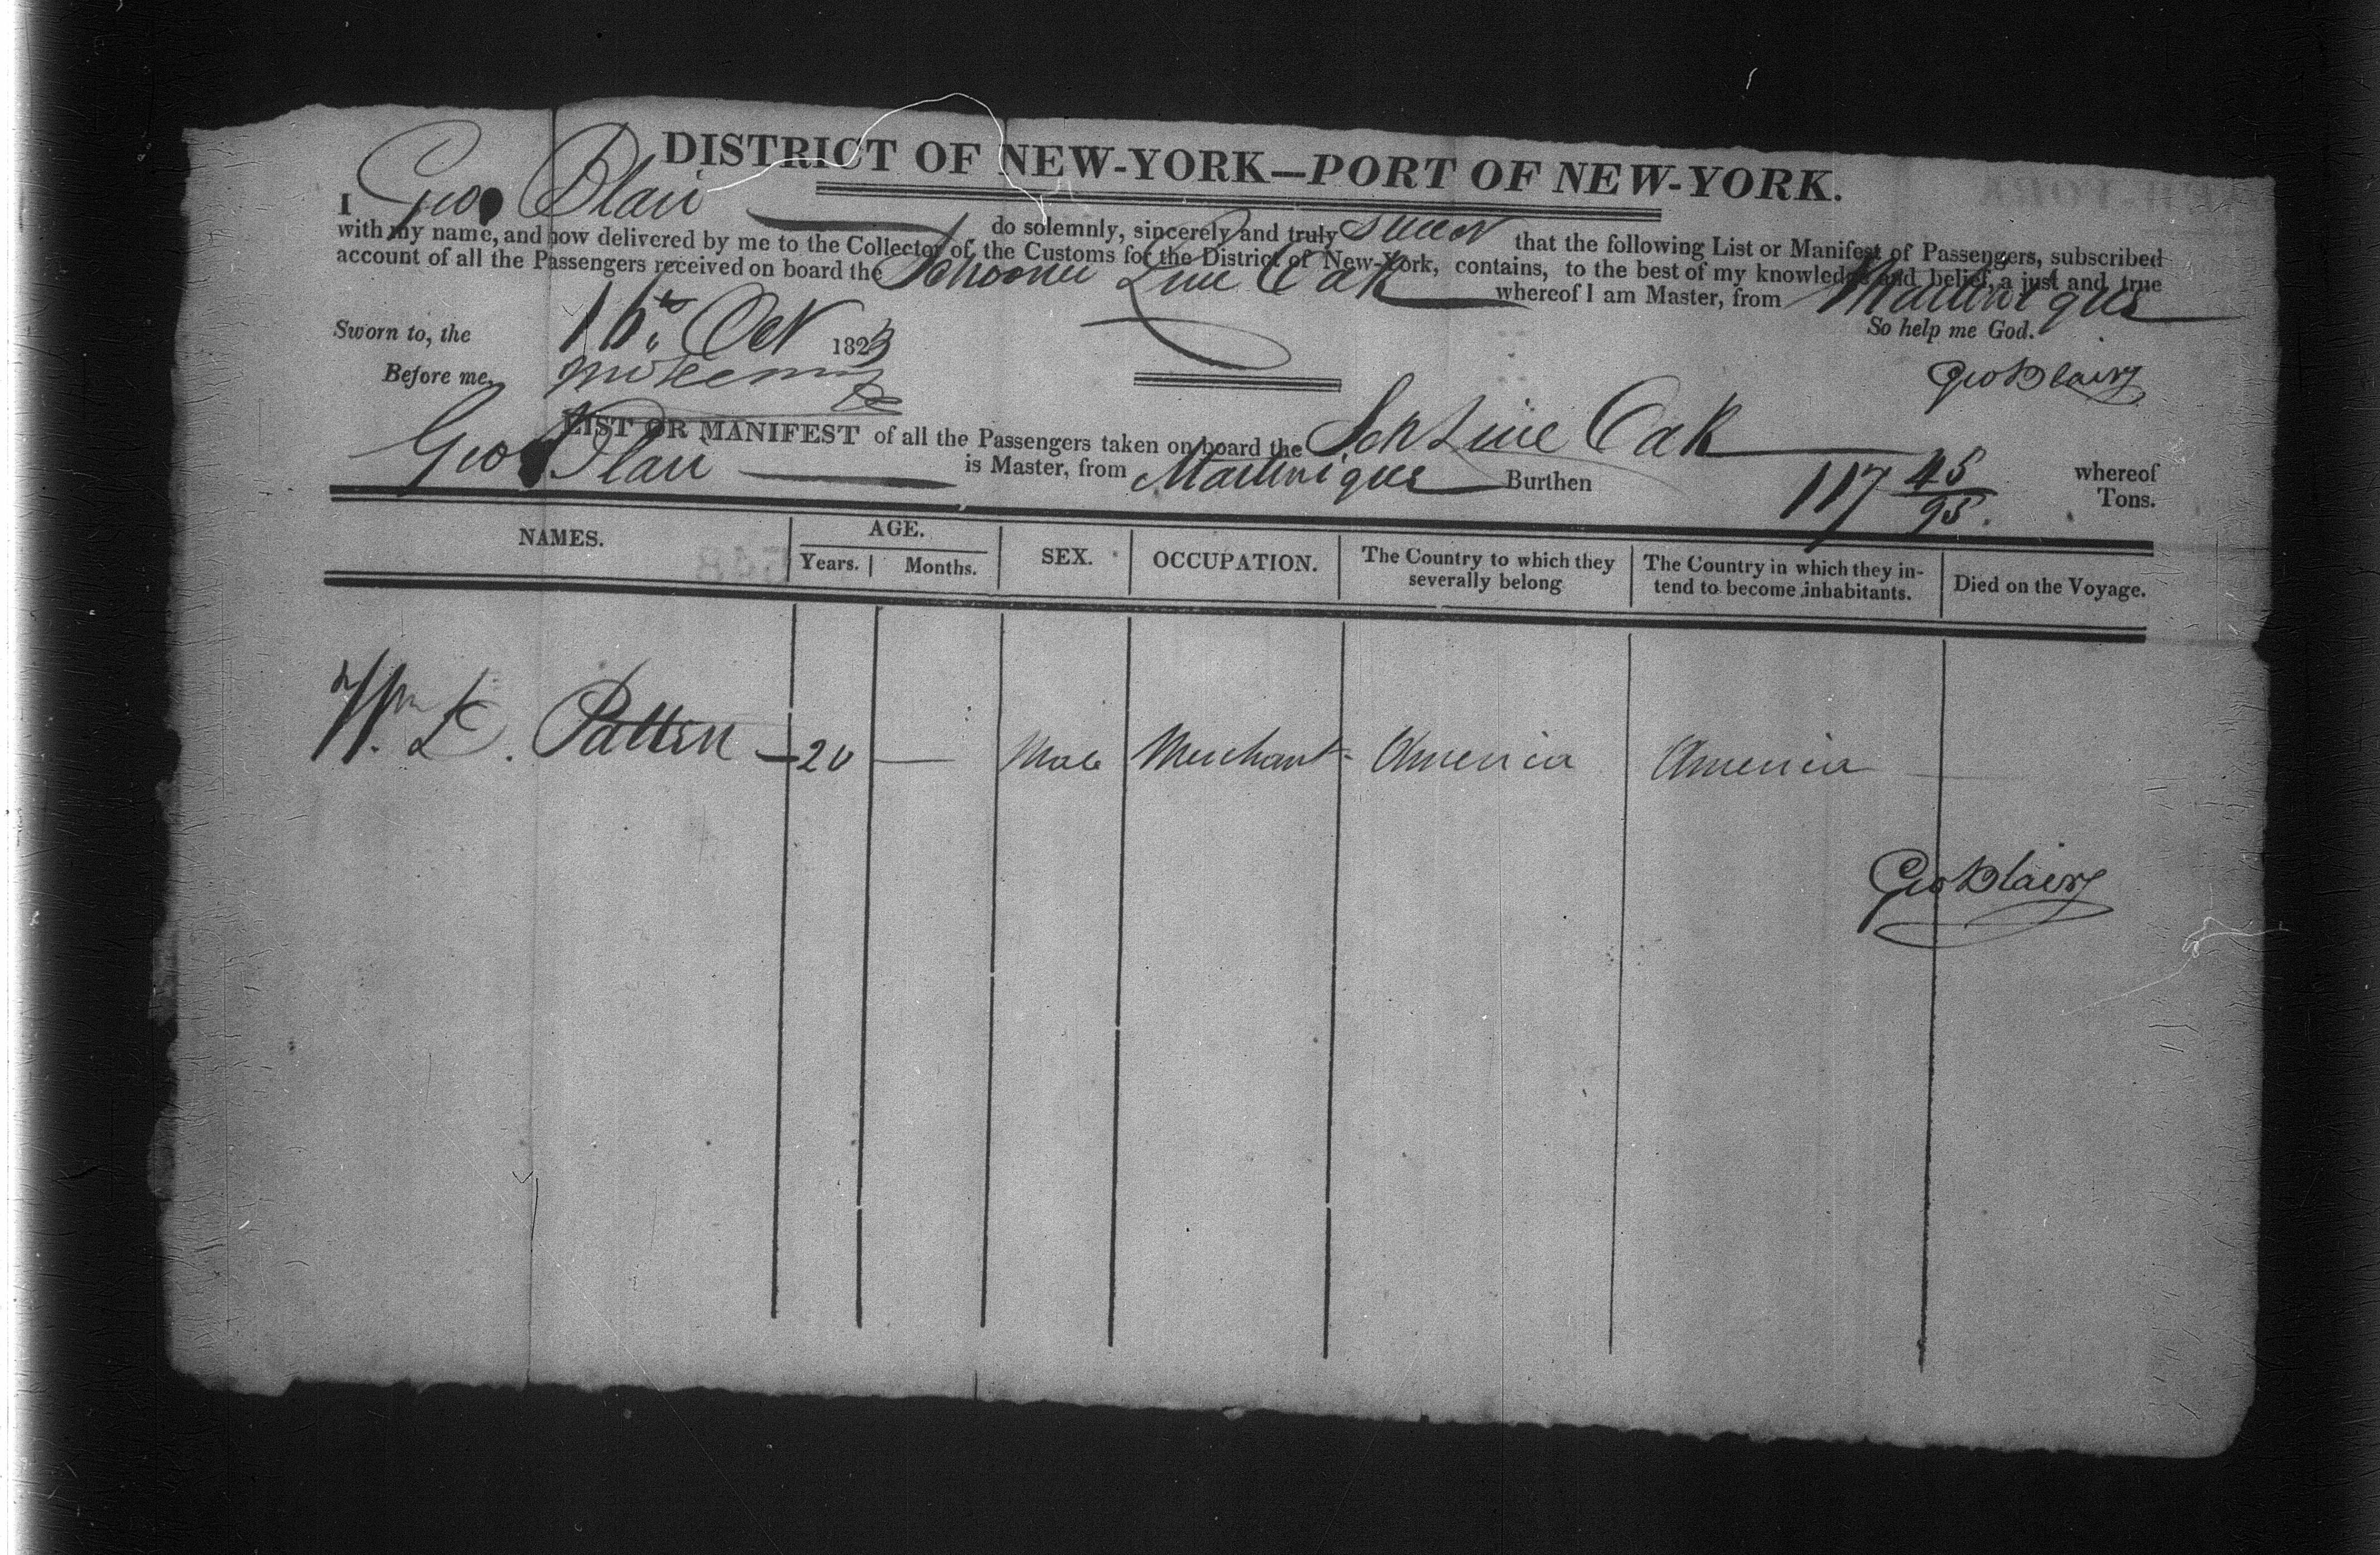 DISTRICT OF NEW-YORK—PORT OF NEW-YORK.
I Geo Blair do solemnly, sincerely and truly swear that the following List or Manifest of Passengers, subscribed
with my name, and now delivered by me to the Collector of the Customs for the District of New-York, contains, to the best of my knowledge and belief, a just and true
account of all the Passengers received on board the Schooner Live Oak whereof I am Master, from Martinique
So help me God.
Sworn to, the 16th Oct 1823
Before me,
Geo Blair
LIST OR MANIFEST of all the Passengers taken on board the Sch Live Oak whereof
Geo Blair is Master, from Martinique Burthen 117 45/95 Tons.
NAMES. AGE. SEX. OCCUPATION. The Country to which they severally belong The Country in which they in-
Years. Months. tend to become inhabitants. Died on the Voyage.
Wm L. Patten — 20 — Male Merchant - America America —
Geo Blair